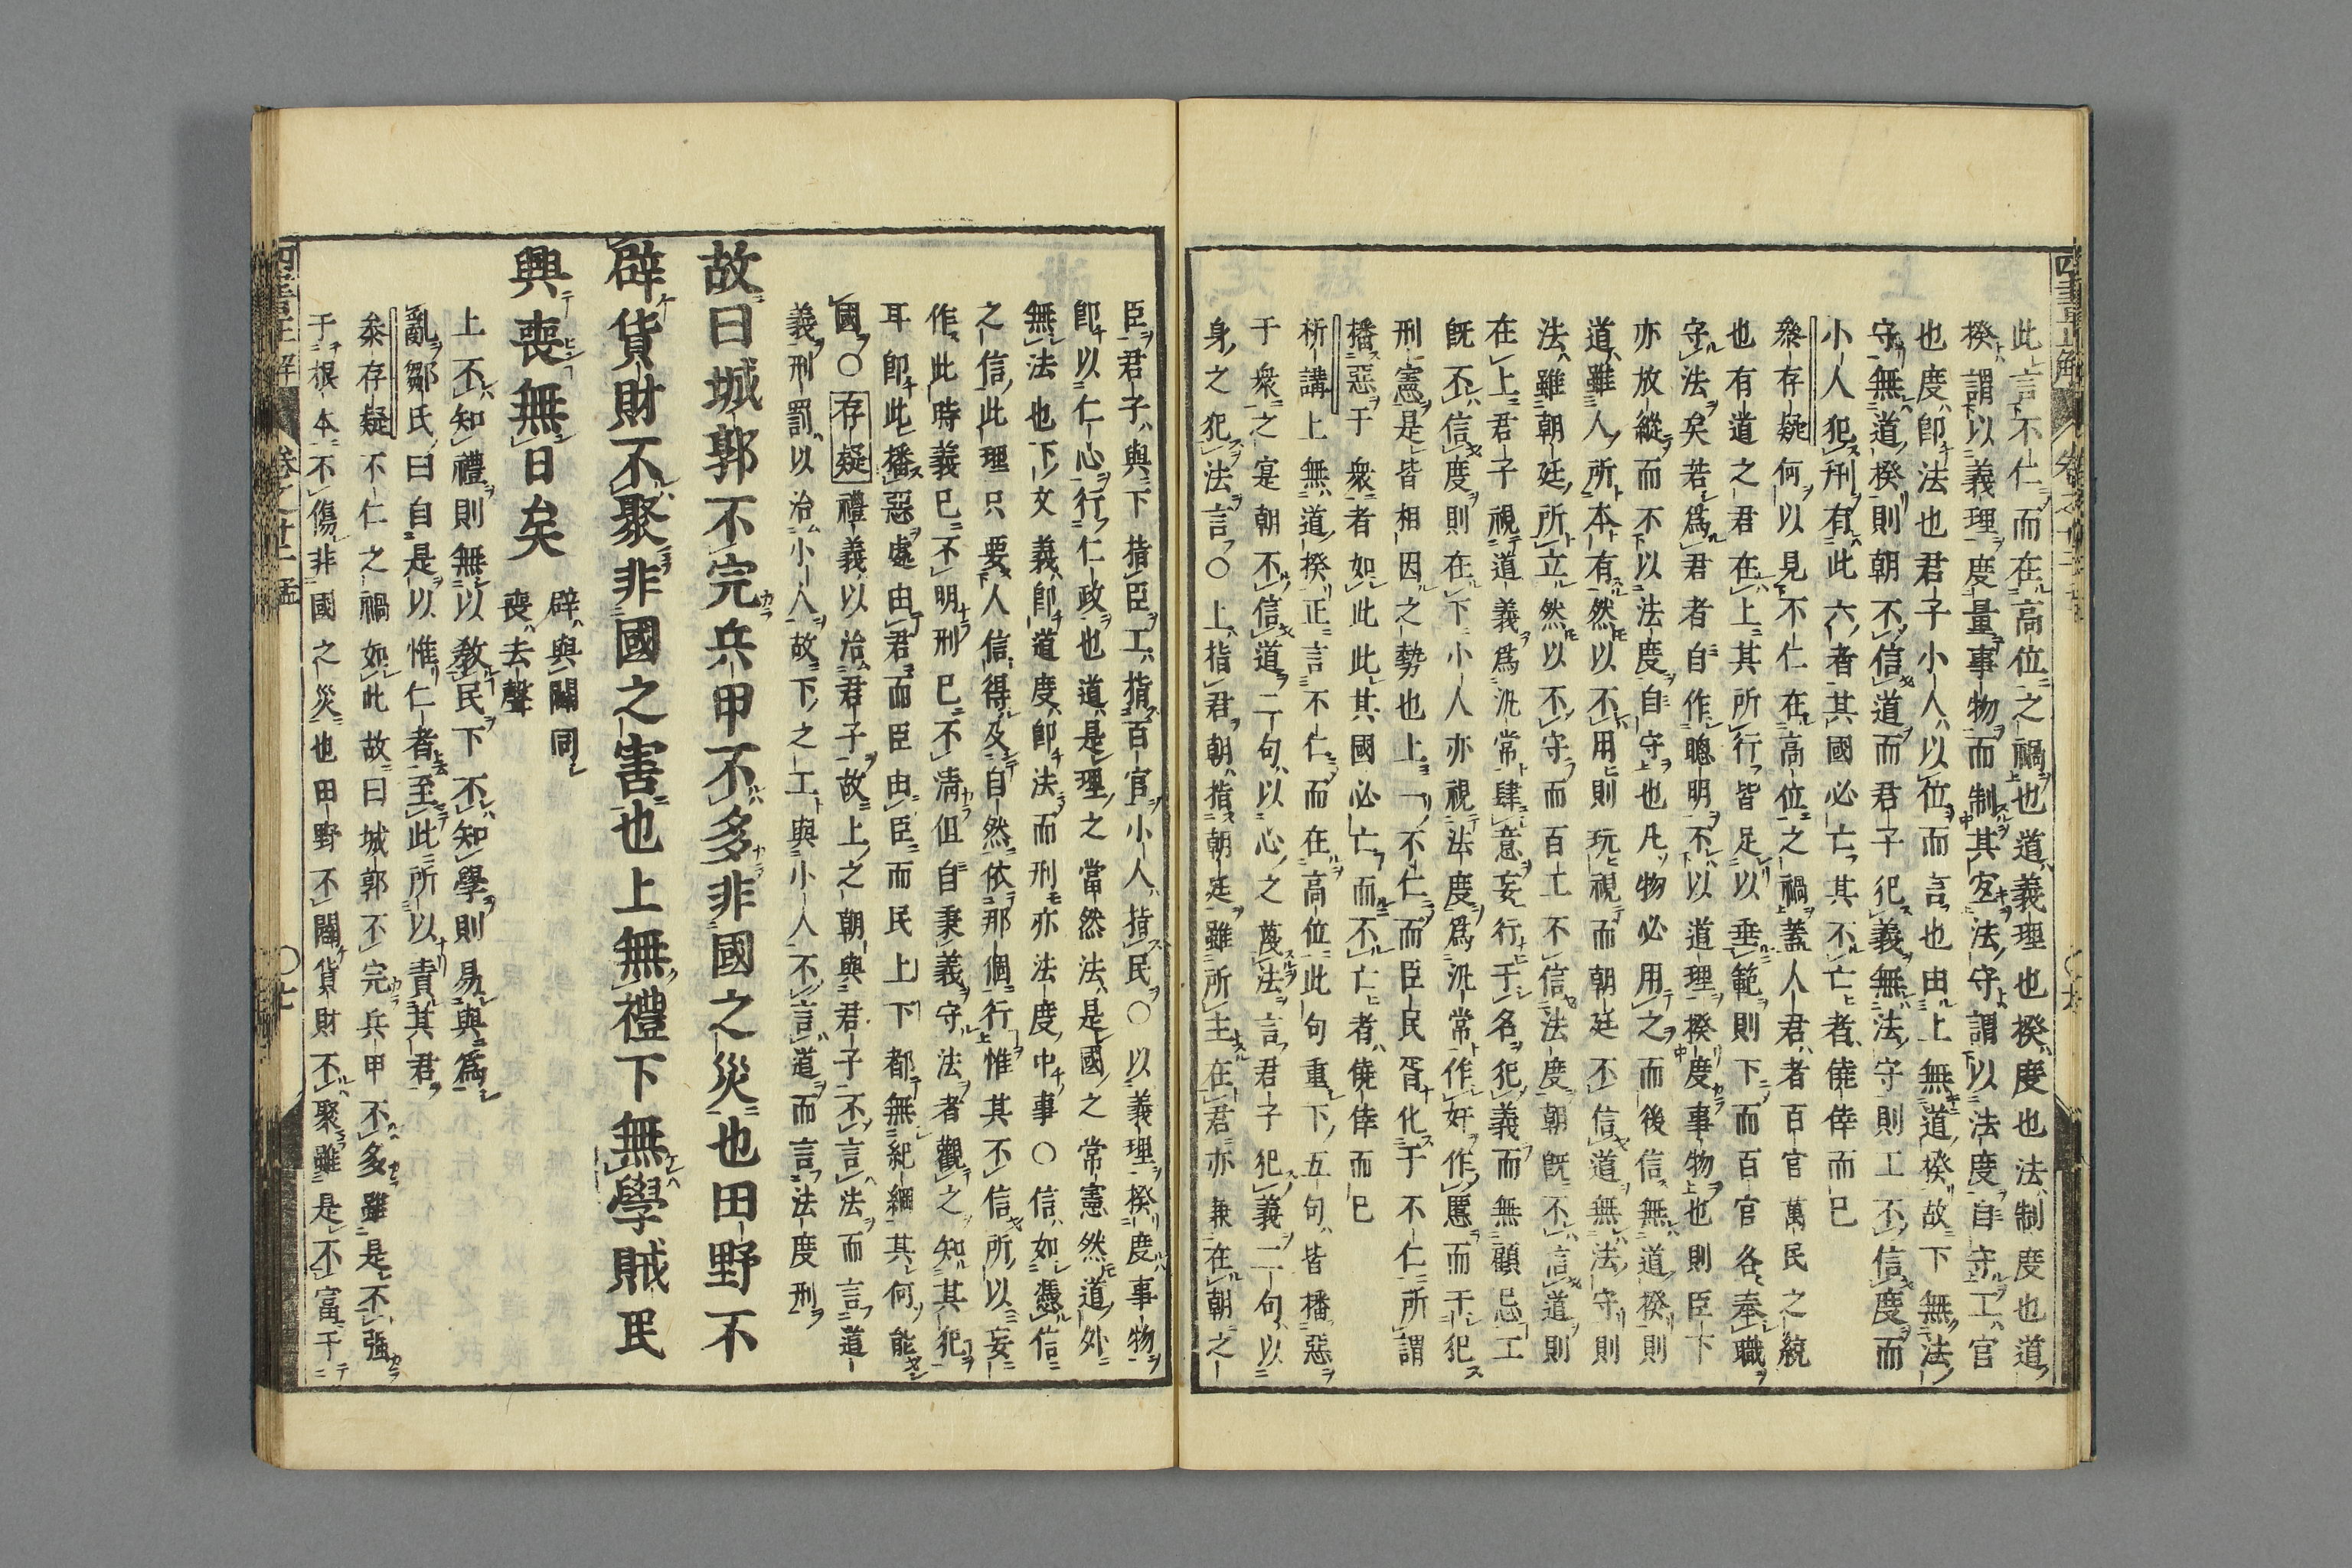 此言不仁而在高位之禍也道義理也揆度也法制度也道
揆謂以義理度量事物而制其宐法守謂以法度自守工官
也度卽法也君子小人以位而言也由上無道揆故下無法
守無道揆則朝不信道而君子犯義無法守則工不信度而
小人犯刑有此六者其國必亡其不亡者僥倖而已
叅存疑何以見不仁在高位之禍蓋人君者百官萬民之統
也有道之君在上其所行皆足以垂範則下而百官各奉職
守法矣若爲君者自作聰明不以道理揆度事物也則臣下
亦放縱而不以法度自守也凡物必用之而後信無道揆則
道雖人所本有然以不用則玩視而朝廷不信道無法守則
法雖朝廷所立然以不守而百工不信法度朝旣不言道則
在上君子視道義爲汎常肆意妄行于名犯義而無顧忌工
旣不信度則在下小人亦視法度爲汎常作奸作慝而干犯
刑憲是皆相因之勢也上一不仁而臣民胥化于不仁所謂
播惡于衆者如此此其國必亡而不亡者僥倖而已
析講上無道揆正言不仁而在高位此句重下五句皆播惡
于衆之寔朝不信道二句以心之蔑法言君子犯義二句以
身之犯法言○上指君朝指朝廷雖所主在君亦兼在朝之
臣君子與下指臣工指百官小人指民○以義理揆度事物
卽以仁心行仁政也道是理之當然法是國之常憲然道外
無法也下文義卽道度卽法而刑亦法度中事○信如憑信
之信此理只要人信得及自然依那個行惟其不信所以妄
作此時義已不明刑已不淸但自秉義守法者觀之知其犯
耳卽此播惡處由君而臣由臣而民上下都無紀綱其何能
國○存疑禮義以治君子故上之朝與君子不言法而言道
義刑罰以治小人故下之工與小人不言道而言法度刑
故曰城郭不完兵甲不多非國之災也田野不
辟貨財不聚非國之害也上無禮下無學賊民
興喪無日矣
辟與闢同
喪去聲
上不知禮則無以敎民下不知學則易與爲
亂鄒氏曰自是以惟仁者至此所以責其君
叅存疑不仁之禍如此故曰城郭不完兵甲不多雖是不强
于根本不傷非國之災也田野不闢貨財不聚雖是不富于